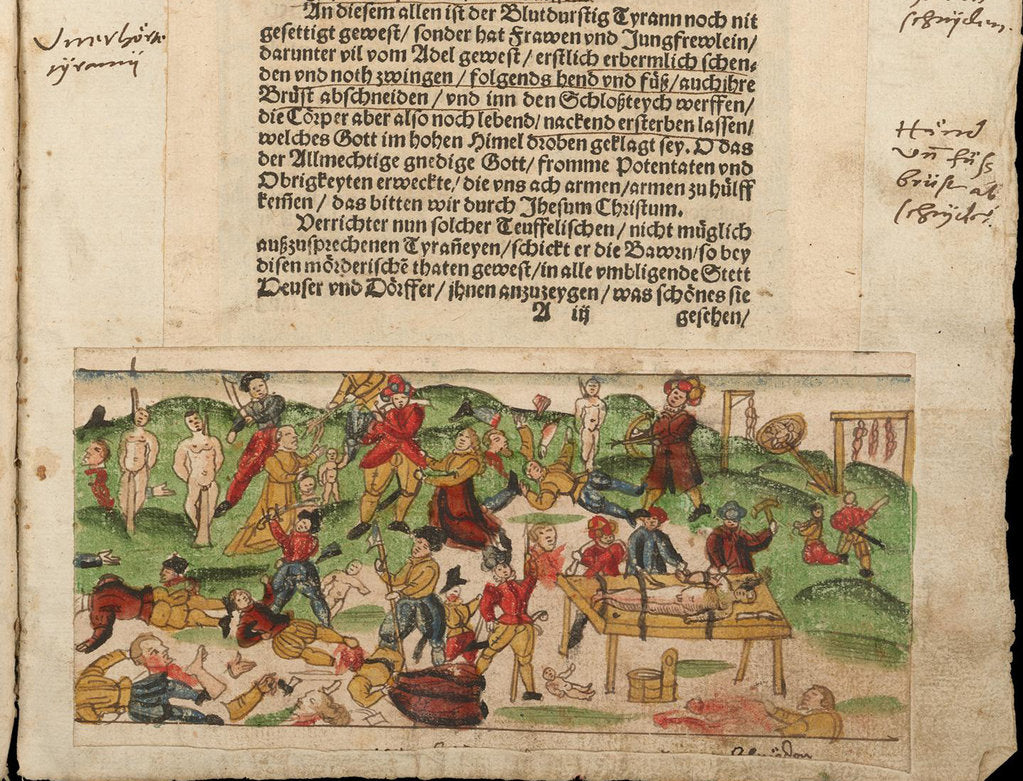 An diesem allen ist der Blutdurstig Tyrann noch nit
gesettigt gewest / sonder hat Frawen vnd Jungfrewlein /
darunter vil vom Adel gewest / erstlich erbermlich schen⸗
den vnd noth zwingen / folgends hend vnd füß / auch jhre
Brüst abschneiden / vnd inn den Schloßteych werffen /
die Cörper aber also noch lebend / nackend ersterben lassen /
welches Gott im hohen Himel droben geklagt sey. O das
der Allmechtige gnedige Gott / fromme Potentaten vnd
Obrigkeyten erweckte / die vns ach armen / armen zu hülff
kem̃en / das bitten wir durch Jhesum Christum.
Verrichter nun solcher Teuffelischen / nicht müglich
außzusprechenen Tyrañeyen / schickt er die Bawrn / so bey
disen mörderischẽ thaten gewest / in alle vmbligende Stett
Heuser vnd Dörffer / jhnen anzuzeygen / was schönes sie
A iij gesehen /
Vnerhörte
tÿranii
schnÿden.
Händ
vñ füß
brüst ab